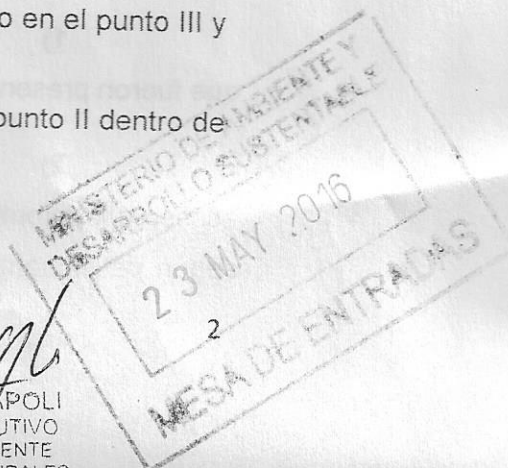 o en el punto III y
punto II dentro de
MINISTERIO DE AMBIENTE Y
DESARROLLO SUSTENTABLE
23 MAY 2016
MESA DE ENTRADAS
2
APOLI
UTIVO
IENTE